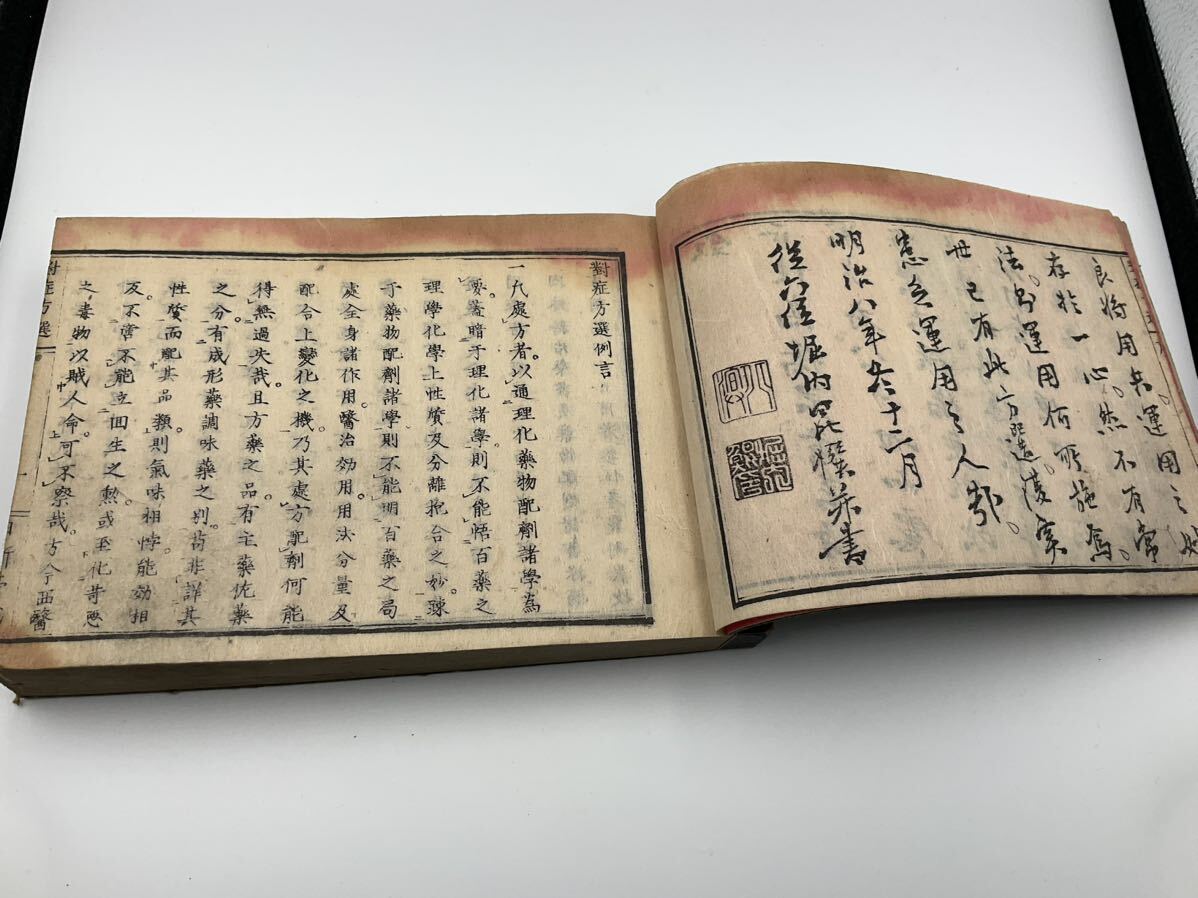 良將用兵。運用之妙
存於一心。然不有常
法。者運用何所施焉。
世已有此方選。湊案
患乏運用之人耶。
明治八年冬十二月
從六位堀内 撰并書
對症方選例言
一凡處方者。以通理化藥物配劑諸學為
要。蓋暗于理化諸學。則不能悟百藥之
理學化學上性質及分離抱合之妙。疎
于藥物配劑諸學則不能明百藥之局
處全身諸作用。醫治効用。用法分量及
配合上變化之機。乃其處方配劑何能
得無過失哉。且方藥之品。有主藥佐藥
之分。有成形藥調味藥之別。苟非詳其
性質而配其品類。則氣味相悖。能効相
反。不啻不能立回生之勲。或至化昔
之毒物以賊人命。可不察哉。方今西醫
對症方選